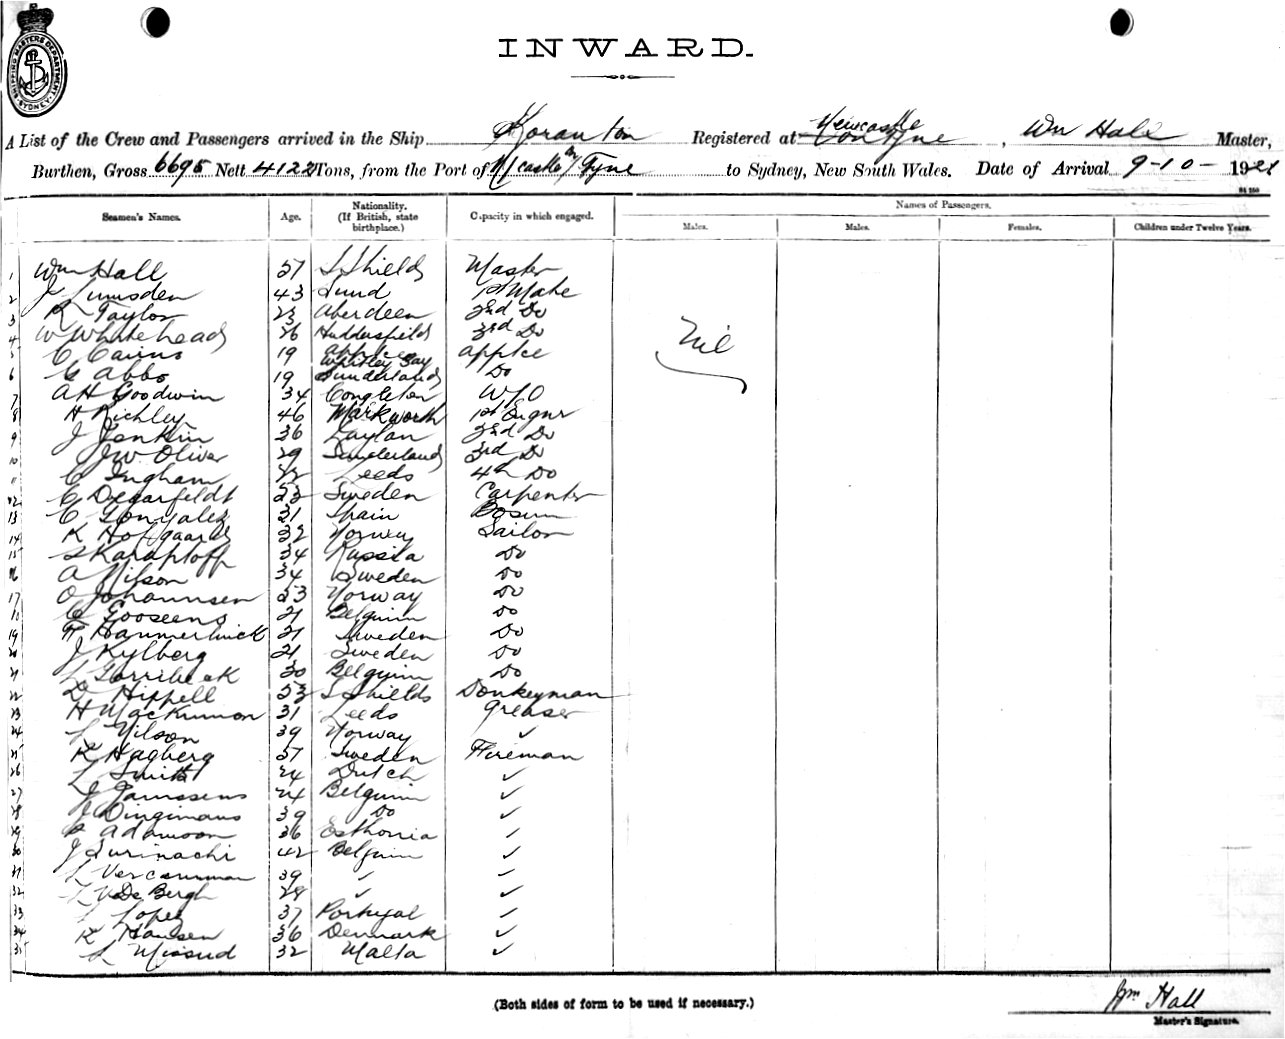 SHIPPING MASTERS DEPARTMENT SYDNEY
INWARD.
A List of the Crew and Passengers arrived in the Ship Koranton Registered at Newcastle on Tyne, Wm Hall Master,
Burthen, Gross 6695 Nett 4122 Tons, from the Port of N/castle on Tyne to Sydney, New South Wales. Date of Arrival 9-10-1921
Seamen's Names. Age. Nationality. (If British, state birthplace.) Capacity in which engaged. Names of Passengers.
Males. Males. Females. Children under Twelve Years.
1 Wm Hall 57 S Shields Master
2 J Lumsden 43 Sund 1st Mate
3 R Taylor 23 Aberdeen 2nd Do
4 W Whitehead 26 Huddersfield 3rd Do
Nil
5 C Cairns 19 Whitley Bay Apptce
6 G Abbs 19 Sunderland Do
7 A H Goodwin 34 Congleton W/O
8 H Richley 46 Warkworth 1st Engnr
9 J Jenkin 36 2nd Do
10 J W Oliver 29 Sunderland 3rd Do
11 C Ingham 22 Leeds 4th Do
12 C Degarfeldt 22 Sweden Carpenter
13 C Gonzalez 31 Spain Bosun
14 K Hofgaard 32 Norway Sailor
15 S Karaptoff 34 Russia Do
16 A Nilson 34 Sweden Do
17 O Johannsen 23 Norway Do
18 C Gooseens 21 Belguim Do
19 F Hammerlinck 21 Sweden Do
20 J Kylberg 21 Sweden Do
21 L Torribeek 30 Belguim Do
22 D Hippell 53 S Shields Donkeyman
23 H MacKinnon 31 Leeds Greaser
24 L Nilson 39 Norway ✓
25 K Hagberg 57 Sweden Fireman
26 L Smith 24 Dutch ✓
27 J Janssens 24 Belguim ✓
28 J Dingimans 39 Do ✓
29 P Adamson 36 Esthonia ✓
30 J Surinachi 42 Belguim ✓
31 L Vercauman 39 ✓ ✓
32 L V De Bergh 28 ✓ ✓
33 L Lopez 37 Portugal ✓
34 K Hansen 36 Denmark ✓
35 L Missud 32 Malta ✓
(Both sides of form to be used if necessary.)
Wm Hall
Master's Signature.